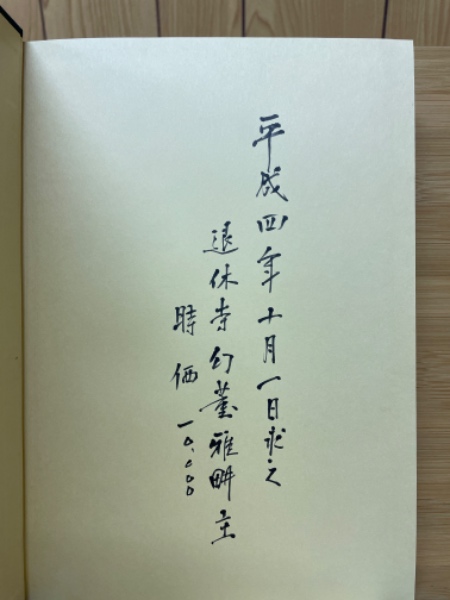 平成四年十月一日求之
退休寺幻董雅畊主
時価一〇、〇〇〇